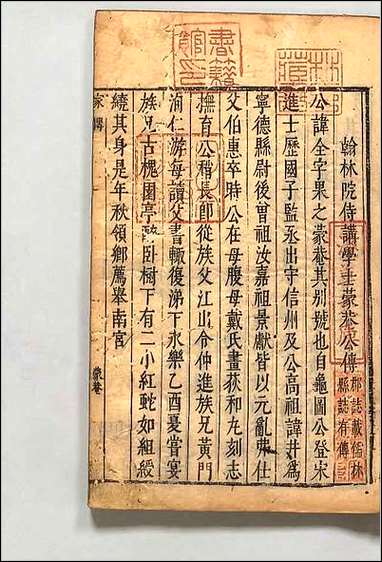 翰林院侍講學士蒙菴公傳
郡誌載儒林
縣誌有傳
公諱全字果之蒙菴其别號也自龜圖公登宋
進士歷國子監丞出守信州及公高祖諱井爲
寧德縣尉後曾祖汝嘉祖景獻皆以元亂弗仕
父伯惠卒時公在母腹母戴氏畫荻和丸刻志
撫育公稍長即從族父江出令仲進族兄黃門
洵仁游每讀父書輙復涕下永樂乙酉夏嘗宴
族兄古槐園亭酣卧樹下有二小紅蛇如組綬
繞其身是年秋領鄉薦舉南宮
家傳
書籍館印